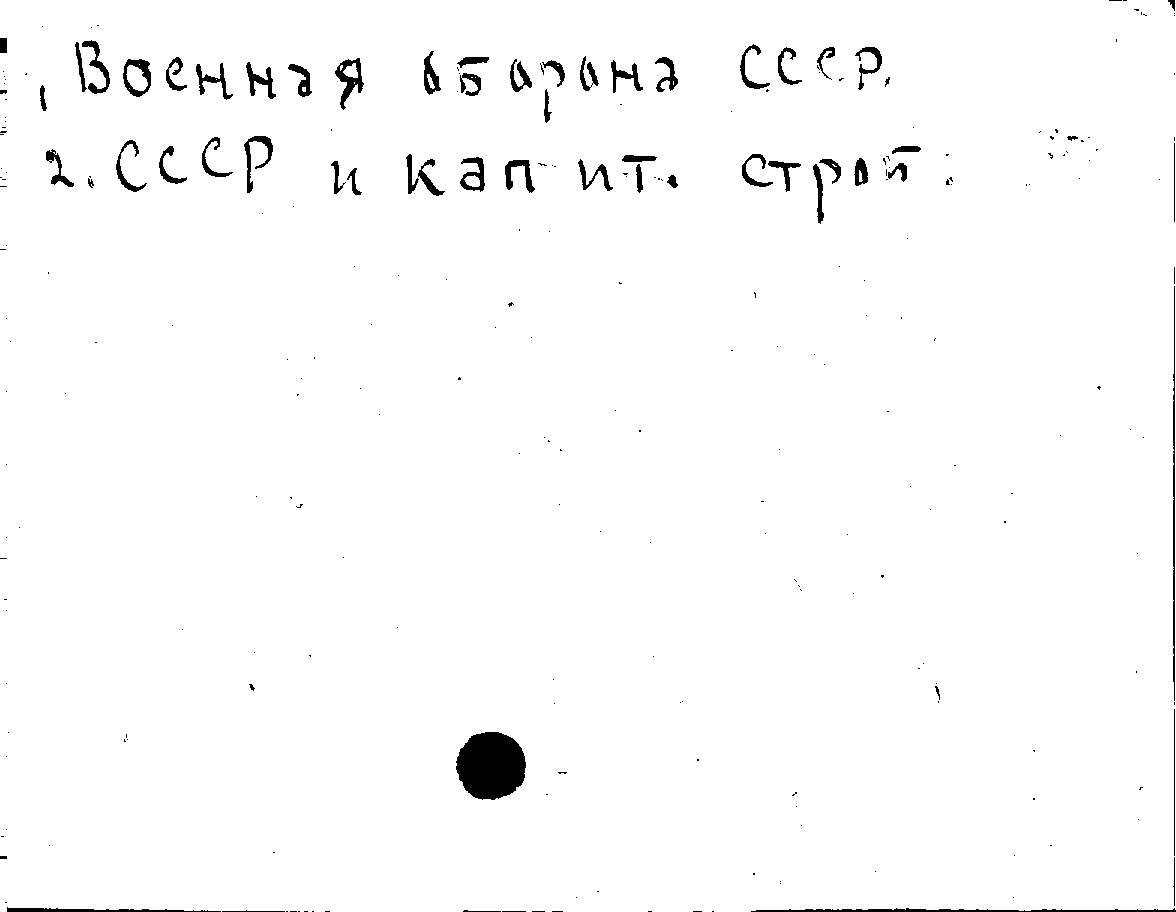 1 Военная оборона СССР.
2. СССР и капит. строй.